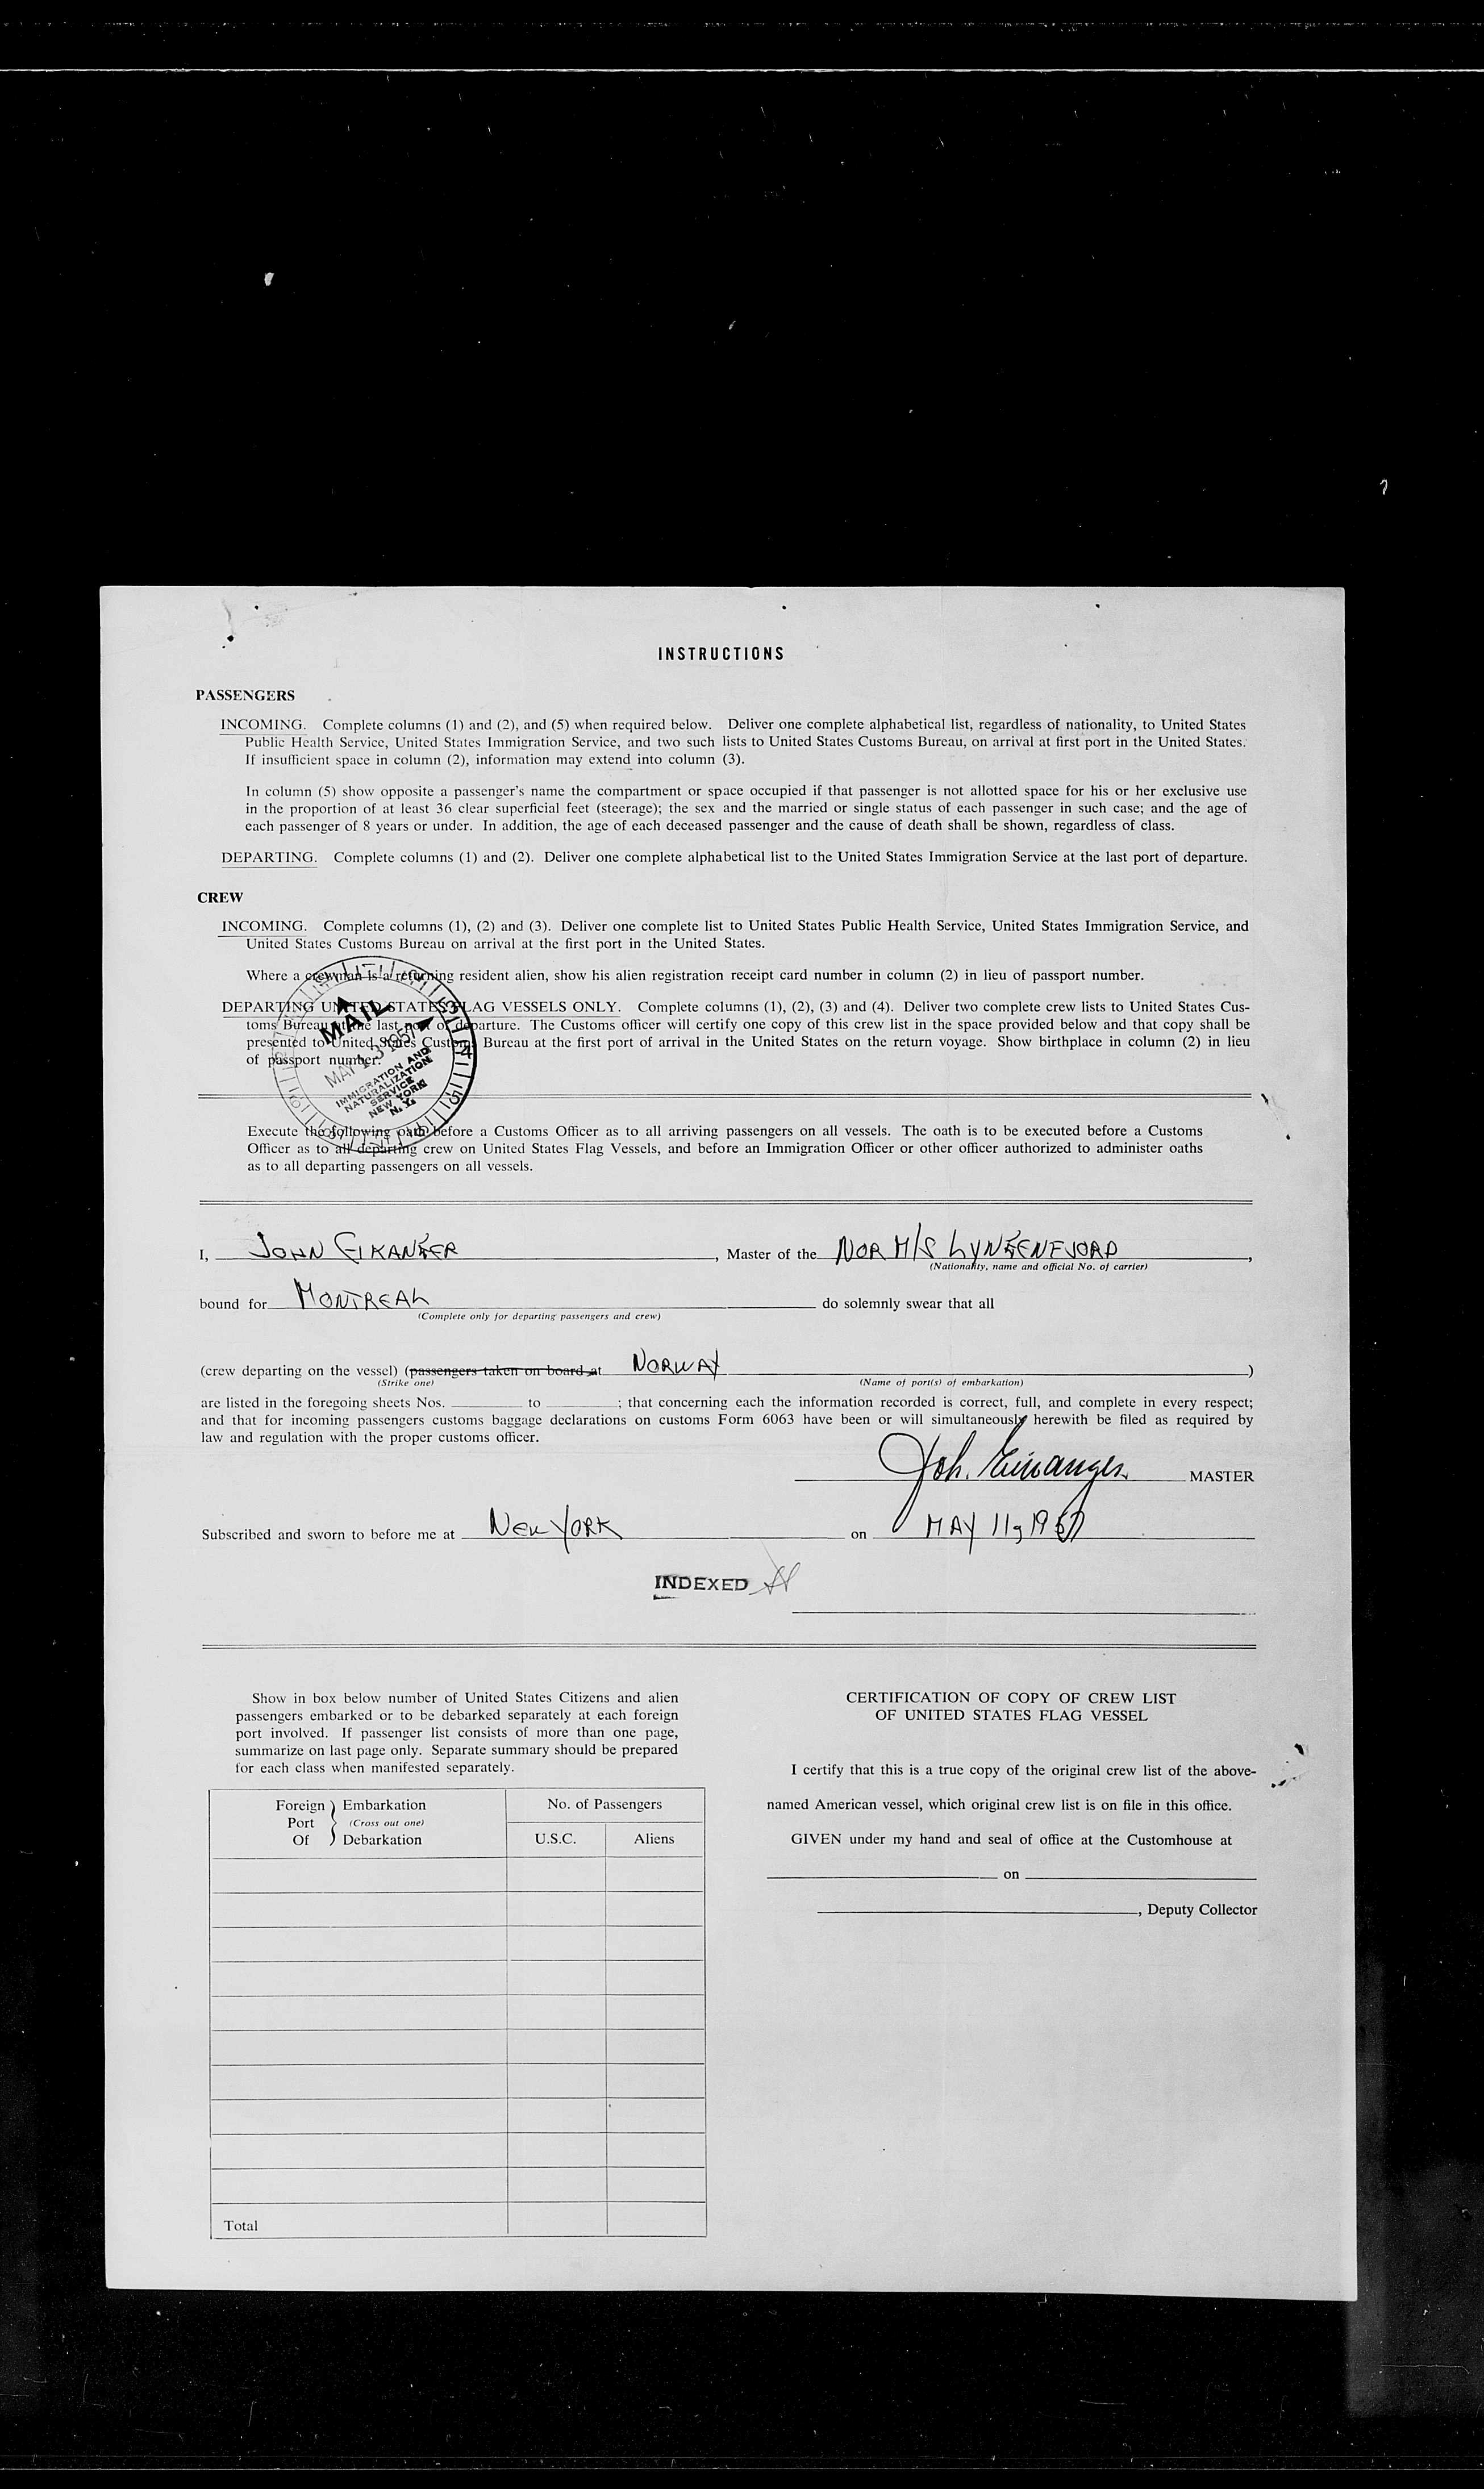 INSTRUCTIONS
PASSENGERS
INCOMING. Complete columns (1) and (2), and (5) when required below. Deliver one complete alphabetical list, regardless of nationality, to United States
Public Health Service, United States Immigration Service, and two such lists to United States Customs Bureau, on arrival at first port in the United States.
If insufficient space in column (2), information may extend into column (3).
In column (5) show opposite a passenger's name the compartment or space occupied if that passenger is not allotted space for his or her exclusive use
in the proportion of at least 36 clear superficial feet (steerage); the sex and the married or single status of each passenger in such case; and the age of
each passenger of 8 years or under. In addition, the age of each deceased passenger and the cause of death shall be shown, regardless of class.
DEPARTING. Complete columns (1) and (2). Deliver one complete alphabetical list to the United States Immigration Service at the last port of departure.
CREW
INCOMING. Complete columns (1), (2) and (3). Deliver one complete list to United States Public Health Service, United States Immigration Service, and
United States Customs Bureau on arrival at the first port in the United States.
Where a crewman is a returning resident alien, show his alien registration receipt card number in column (2) in lieu of passport number.
DEPARTING UNITED STATES FLAG VESSELS ONLY. Complete columns (1), (2), (3) and (4). Deliver two complete crew lists to United States Cus-
toms Bureau at the last port of departure. The Customs officer will certify one copy of this crew list in the space provided below and that copy shall be
presented to United States Customs Bureau at the first port of arrival in the United States on the return voyage. Show birthplace in column (2) in lieu
of passport number.
MAIL
MAY 13 1957
IMMIGRATION AND
NATURALIZATION
SERVICE
NEW YORK
N. Y.
Execute the following oath before a Customs Officer as to all arriving passengers on all vessels. The oath is to be executed before a Customs
Officer as to all departing crew on United States Flag Vessels, and before an Immigration Officer or other officer authorized to administer oaths
as to all departing passengers on all vessels.
I, JOHN EIKANGER, Master of the NOR M/S LYNGENFJORD,
(Nationality, name and official No. of carrier)
bound for MONTREAL do solemnly swear that all
(Complete only for departing passengers and crew)
(crew departing on the vessel) (passengers taken on board at NORWAY)
(Strike one) (Name of port(s) of embarkation)
are listed in the foregoing sheets Nos. to ; that concerning each the information recorded is correct, full, and complete in every respect;
and that for incoming passengers customs baggage declarations on customs Form 6063 have been or will simultaneously herewith be filed as required by
law and regulation with the proper customs officer.
Joh. Eikanger MASTER
Subscribed and sworn to before me at NEW YORK on MAY 11, 1957
INDEXED
Show in box below number of United States Citizens and alien
passengers embarked or to be debarked separately at each foreign
port involved. If passenger list consists of more than one page,
summarize on last page only. Separate summary should be prepared
for each class when manifested separately.
Foreign Port Of
Embarkation
(Cross out one)
Debarkation
No. of Passengers
U.S.C. Aliens
Total
CERTIFICATION OF COPY OF CREW LIST
OF UNITED STATES FLAG VESSEL
I certify that this is a true copy of the original crew list of the above-
named American vessel, which original crew list is on file in this office.
GIVEN under my hand and seal of office at the Customhouse at
on
, Deputy Collector